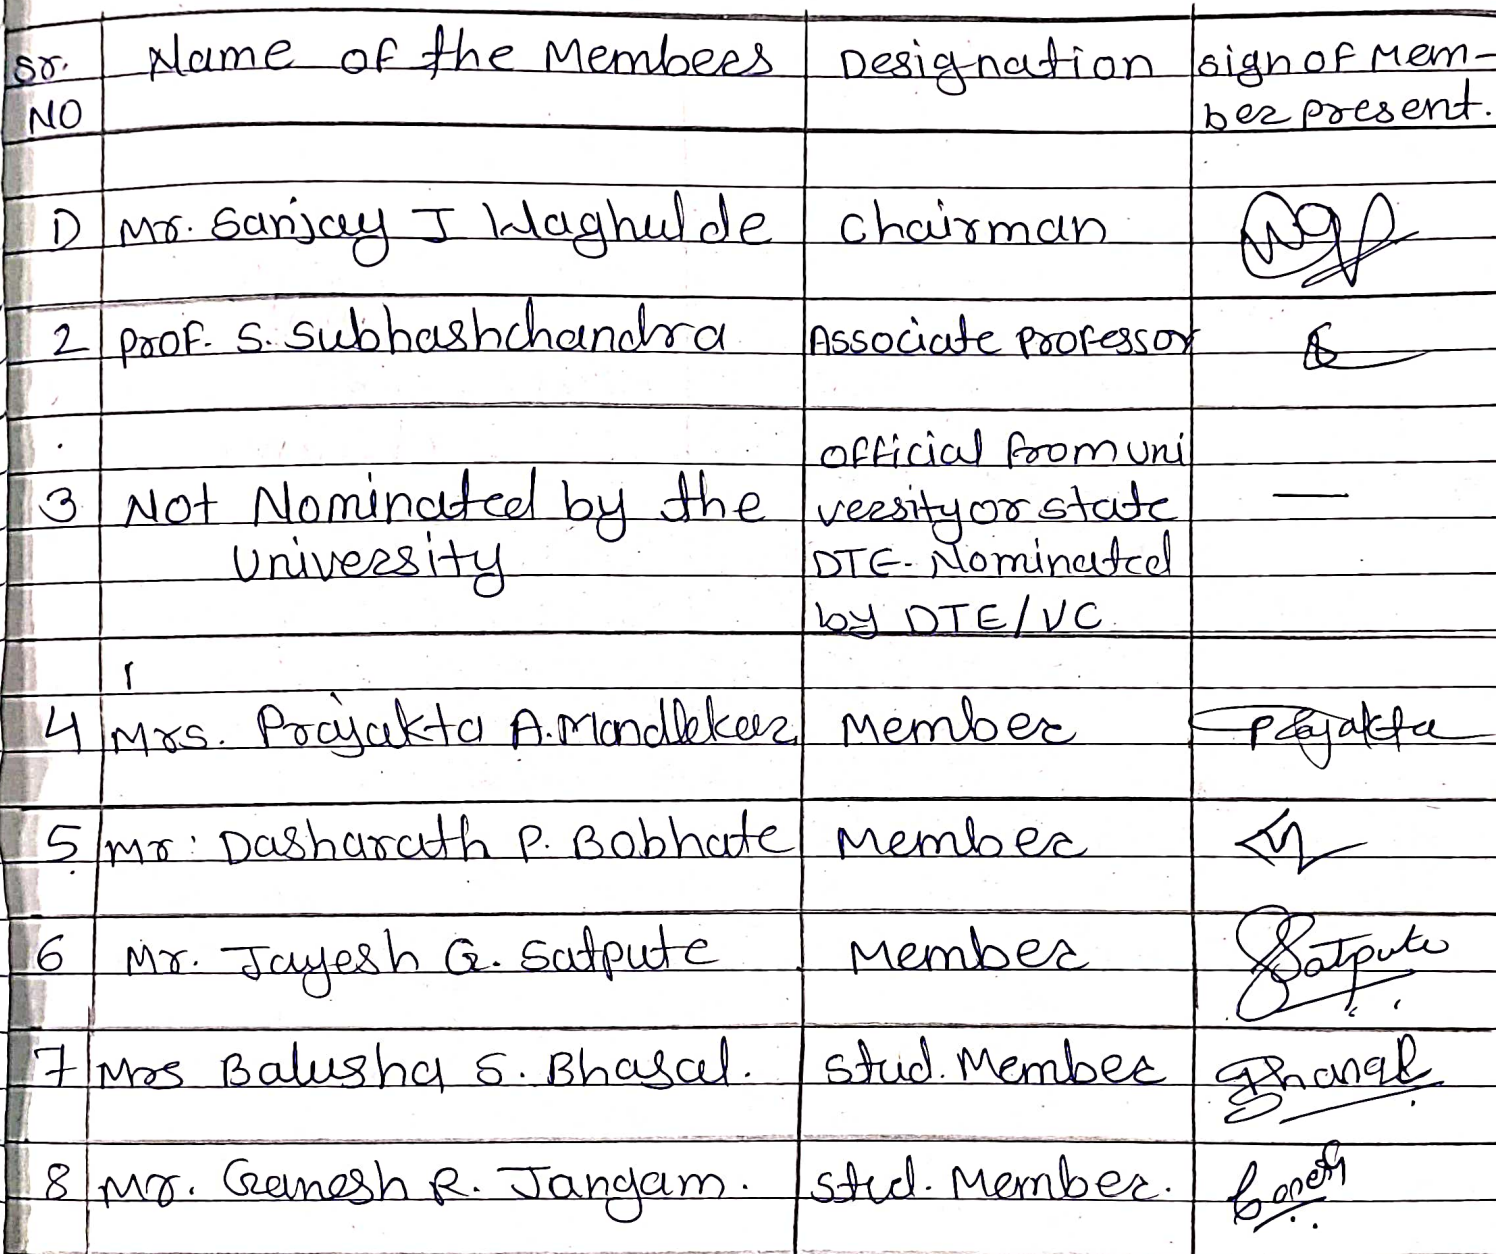 Sr. Name of the Members Designation sign of Mem-
NO ber present.
1) Mr. Sanjay J Waghulde Chairman
2 Prof. S. Subhashchandra Associate Professor
official from uni
3 Not Nominated by the versity or state —
University DTE- Nominated
by DTE/VC.
4 Mrs. Prajakta A. Mandlekar Member Prajakta
5 Mr. Dasharath P. Bobhate Member
6 Mr. Jayesh G. Satpute Member Satpute
7 Mrs Balusha S. Stud. Member
8 Mr. Ganesh R. Jangam. Stud. Member.